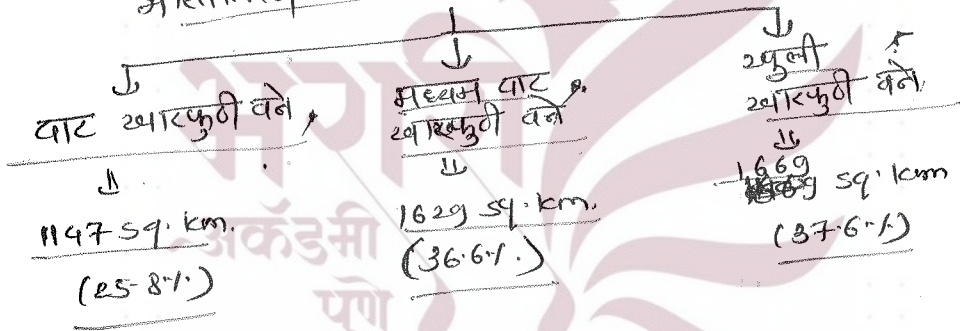 दाट खारफुटी वने
⇓
1147 sq. km.
(25.8%)
मध्यम दाट
खारफुटी वने
⇓
1629 sq. km.
(36.6%.)
खुली
खारफुटी वने
⇓
1669
sq. km
(37.6%)
अकॅडमी
पुणे